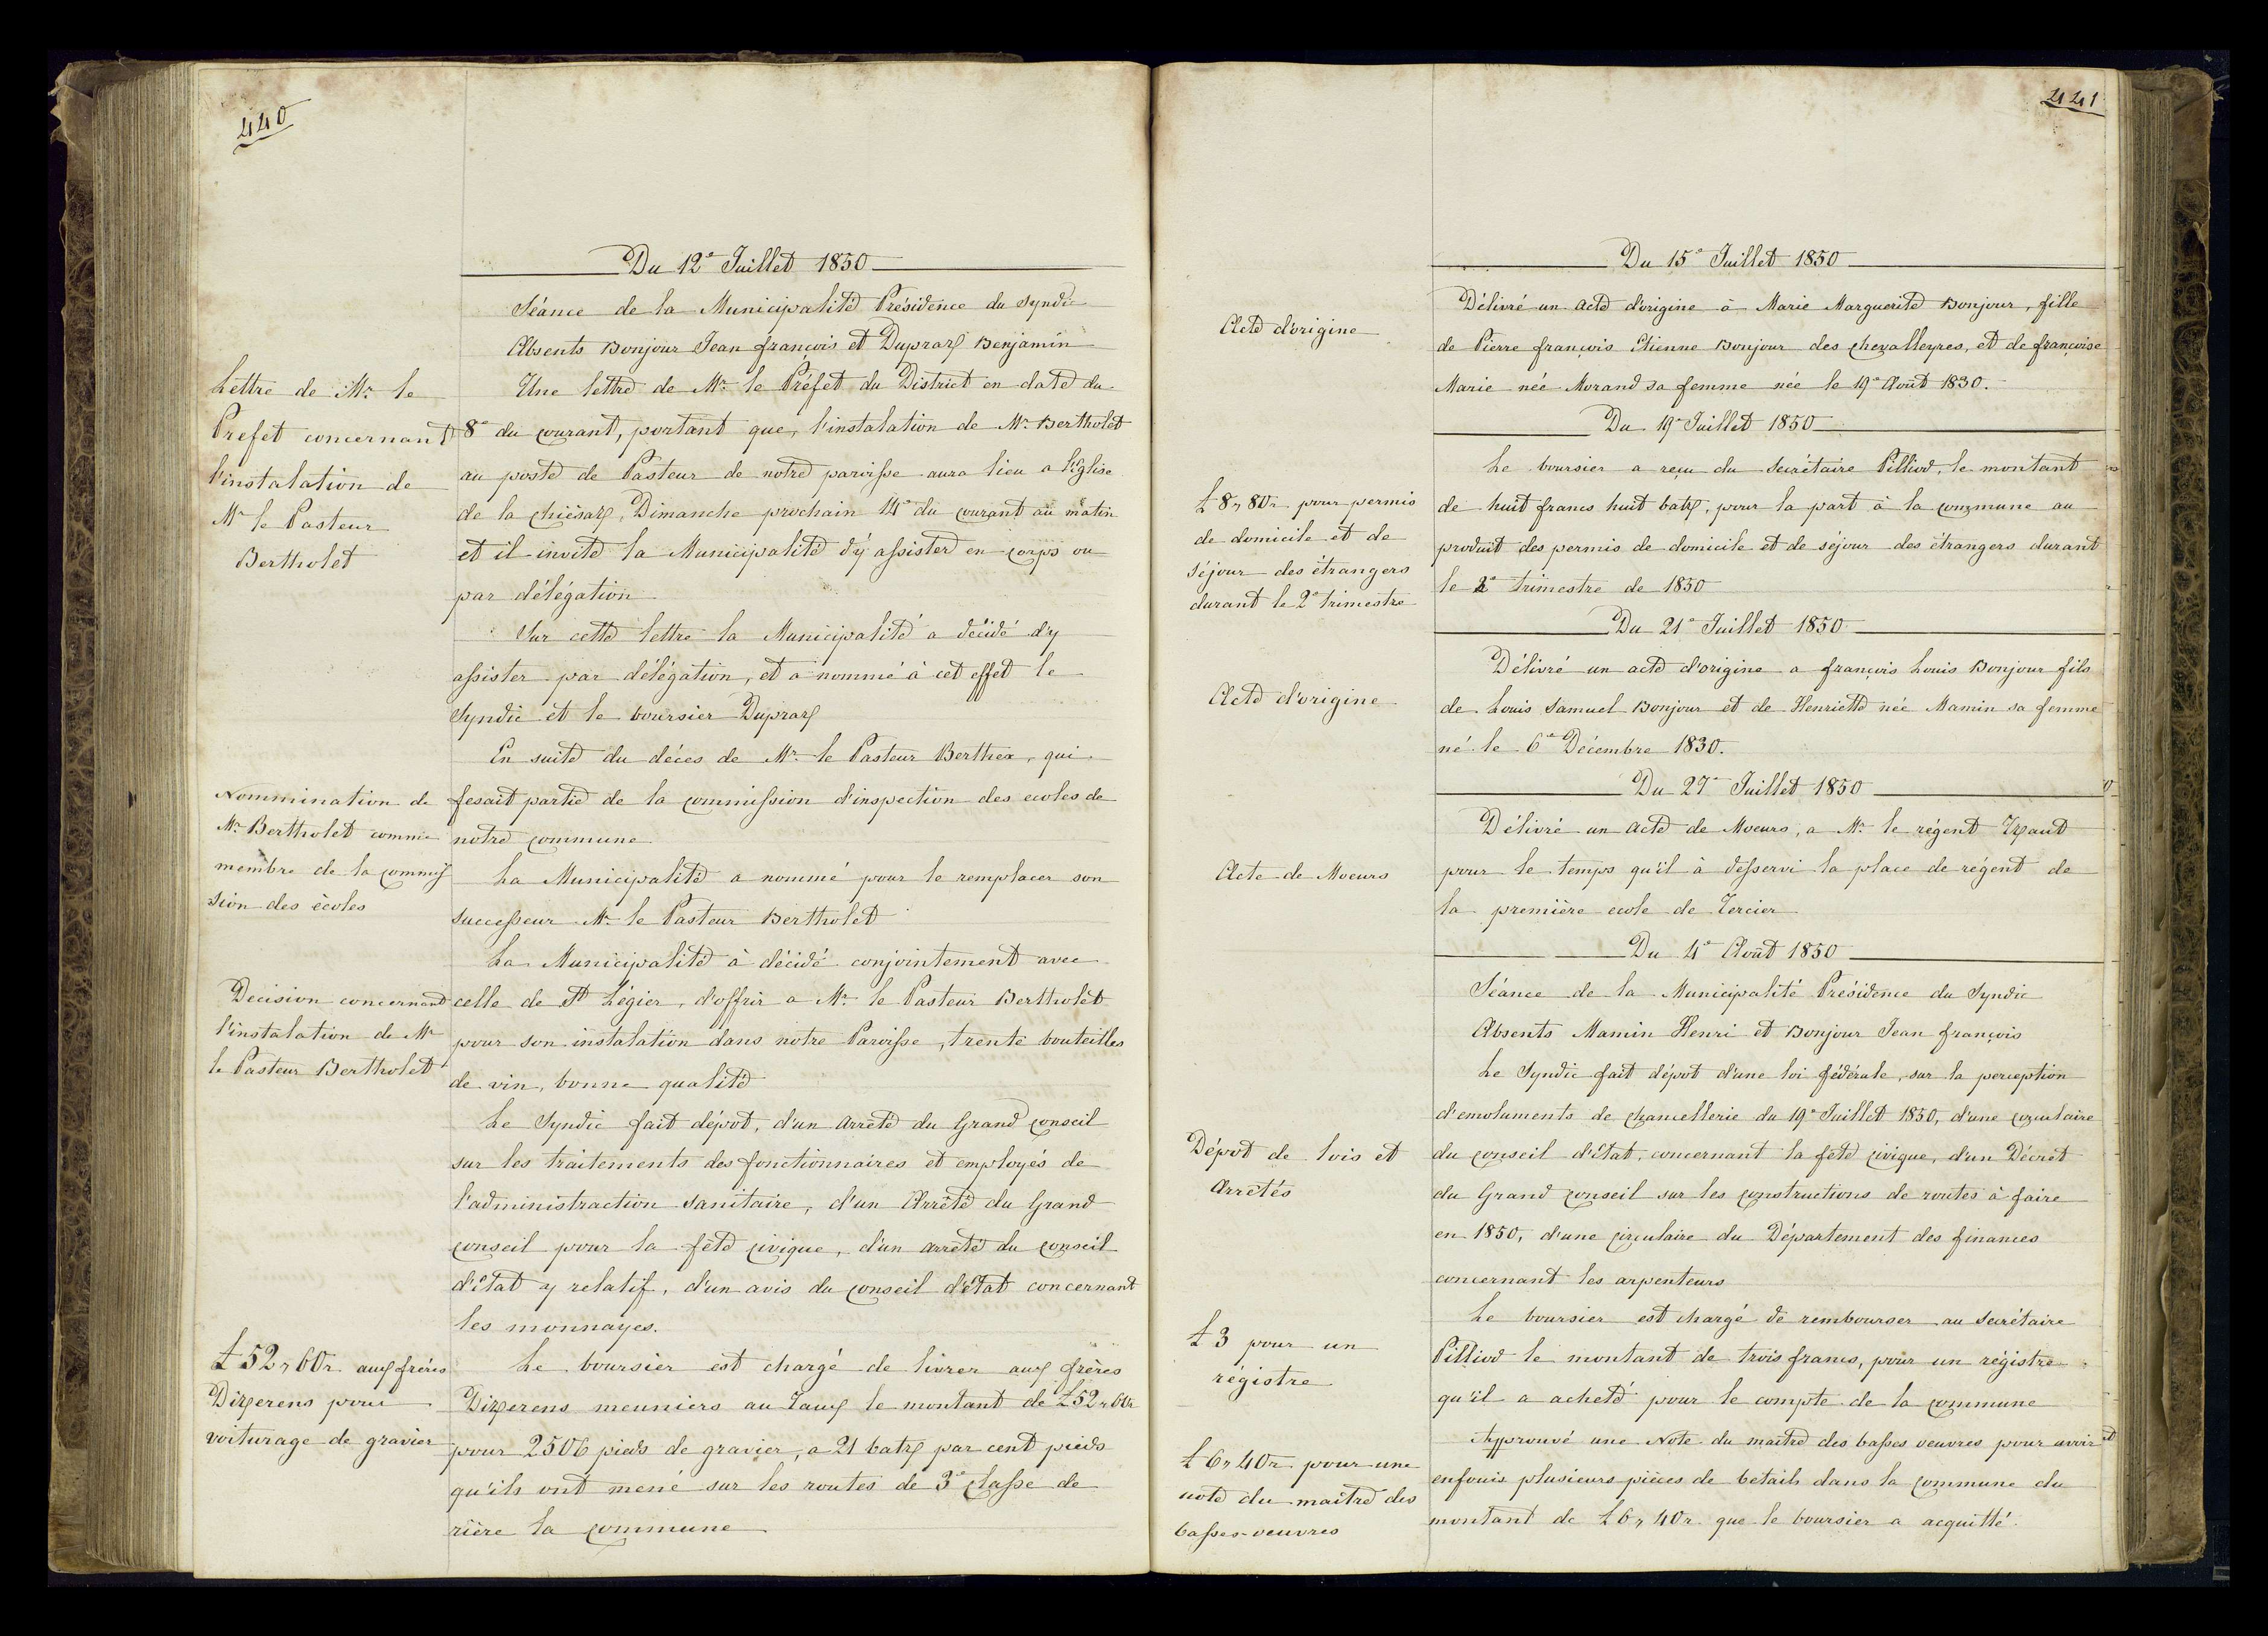 440
Du 12e Juillet 1850
Séance de la Municipalité Présidence du Syndic
Absents Bonjour Jean françois et Dupraz Benjamin
Lettre de Mr. le
Prefet concernant
l'instalation de
Mr le Pasteur
Bertholet
Une lettre de Mr. le Préfet du District en date du
8e du courant, portant que, l'instalation de Mr. Bertholet
au poste de Pasteur de notre paroisse aura lieu a l'Eglise
de la Chiésaz, Dimanche prochain 14e du courant au matin
et il invite la Municipalité d'y assister en corps ou
par délégation
Sur cette lettre la Municipalité a décidé d'y
assister par délégation, et a nommé à cet effet le
Syndic et le boursier Dupraz
Nommination de
Mr. Bertholet comme
membre de la commis
sion des écoles
En suite du déces de Mr. le Pasteur Berthex, qui
fesait partie de la commission d'inspection des ecoles de
notre commune
La Municipalité a nommé pour le remplacer son
successeur Mr. le Pasteur Bertholet
Decision concernant
l'instalation de Mr
le Pasteur Bertholet
La Municipalité à décidé conjointement avec
celle de St Légier, d'offrir a Mr. le Pasteur Bertholet
pour son instalation dans notre Paroisse, trente bouteilles
de vin, bonne qualité
Le Syndic fait dépot, d'un arrêté du Grand conseil
sur les traitements des fonctionnaires et employés de
l'administraction sanitaire, d'un Arrêté du Grand
conseil pour la fête civique, d'un arrêté du conseil
d'état y relatif, d'un avis du conseil d'état concernant
les monnayes.
£ 52,,60r. aux frères
Dizerens pour
voiturage de gravier
Le boursier est chargé de livrer aux frères
Dizerens meuniers au Zaux le montant de £52,,60r
pour 2506 pieds de gravier, a 21 batz par cent pieds
qu'ils ont mené sur les routes de 3e classe de
rière la commune
441
Du 15e Juillet 1850
Acte d'origine
Délivré un acte d'origine à Marie Marguerite Bonjour, fille
de Pierre françois Etienne Bonjour des chevalleyres, et de françoise
Marie née Morand sa femme née le 19e Août 1830.
Du 19e Juillet 1850
£ 8,,80r. pour permis
de domicile et de
séjour des étrangers
durant le 2e trimestre
Le boursier a reçu du secrétaire Pilliod, le montant
de huit francs huit batz, pour la part à la commune au
produit des permis de domicile et de séjour des étrangers durant
le 2e trimestre de 1850
Du 21e Juillet 1850
Acte d'origine
Délivré un acte d'origine a françois Louis Bonjour fils
de Louis Samuel Bonjour et de Henriette née Mamin sa femme
né le 6e Décembre 1830.
Du 27e Juillet 1850
Acte de Moeurs
Délivré un acte de Moeurs, a Mr. le régent
pour le temps qu'il à desservi la place de régent de
la première ecole de Tercier
Du 4e Août 1850
Séance de la Municipalité Présidence du Syndic
Absents Mamin Henri et Bonjour Jean françois
Dépot de lois et
Arrêtés
Le Syndic fait dépot d'une loi fédérale, sur la perception
d'emoluments de chancellerie du 19e Juillet 1850, d'une circulaire
du conseil d'état, concernant la fête civique, d'un Décret
du Grand conseil sur les constructions de routes à faire
en 1850, d'une circulaire du Département des finances
concernant les arpenteurs
£ 3 pour un
régistre
Le boursier est chargé de rembourser au secrétaire
Pilliod le montant de trois francs, pour un régistre
qu'il a acheté pour le compte de la commune
£ 6,,40r. pour une
note du maitre des
basses-oeuvres
Approuvé une Note du maitre des basses oeuvres pour avoir
enfouis plusieurs pièces de betails dans la commune du
montant de £ 6,,40r. que le boursier a acquitté.